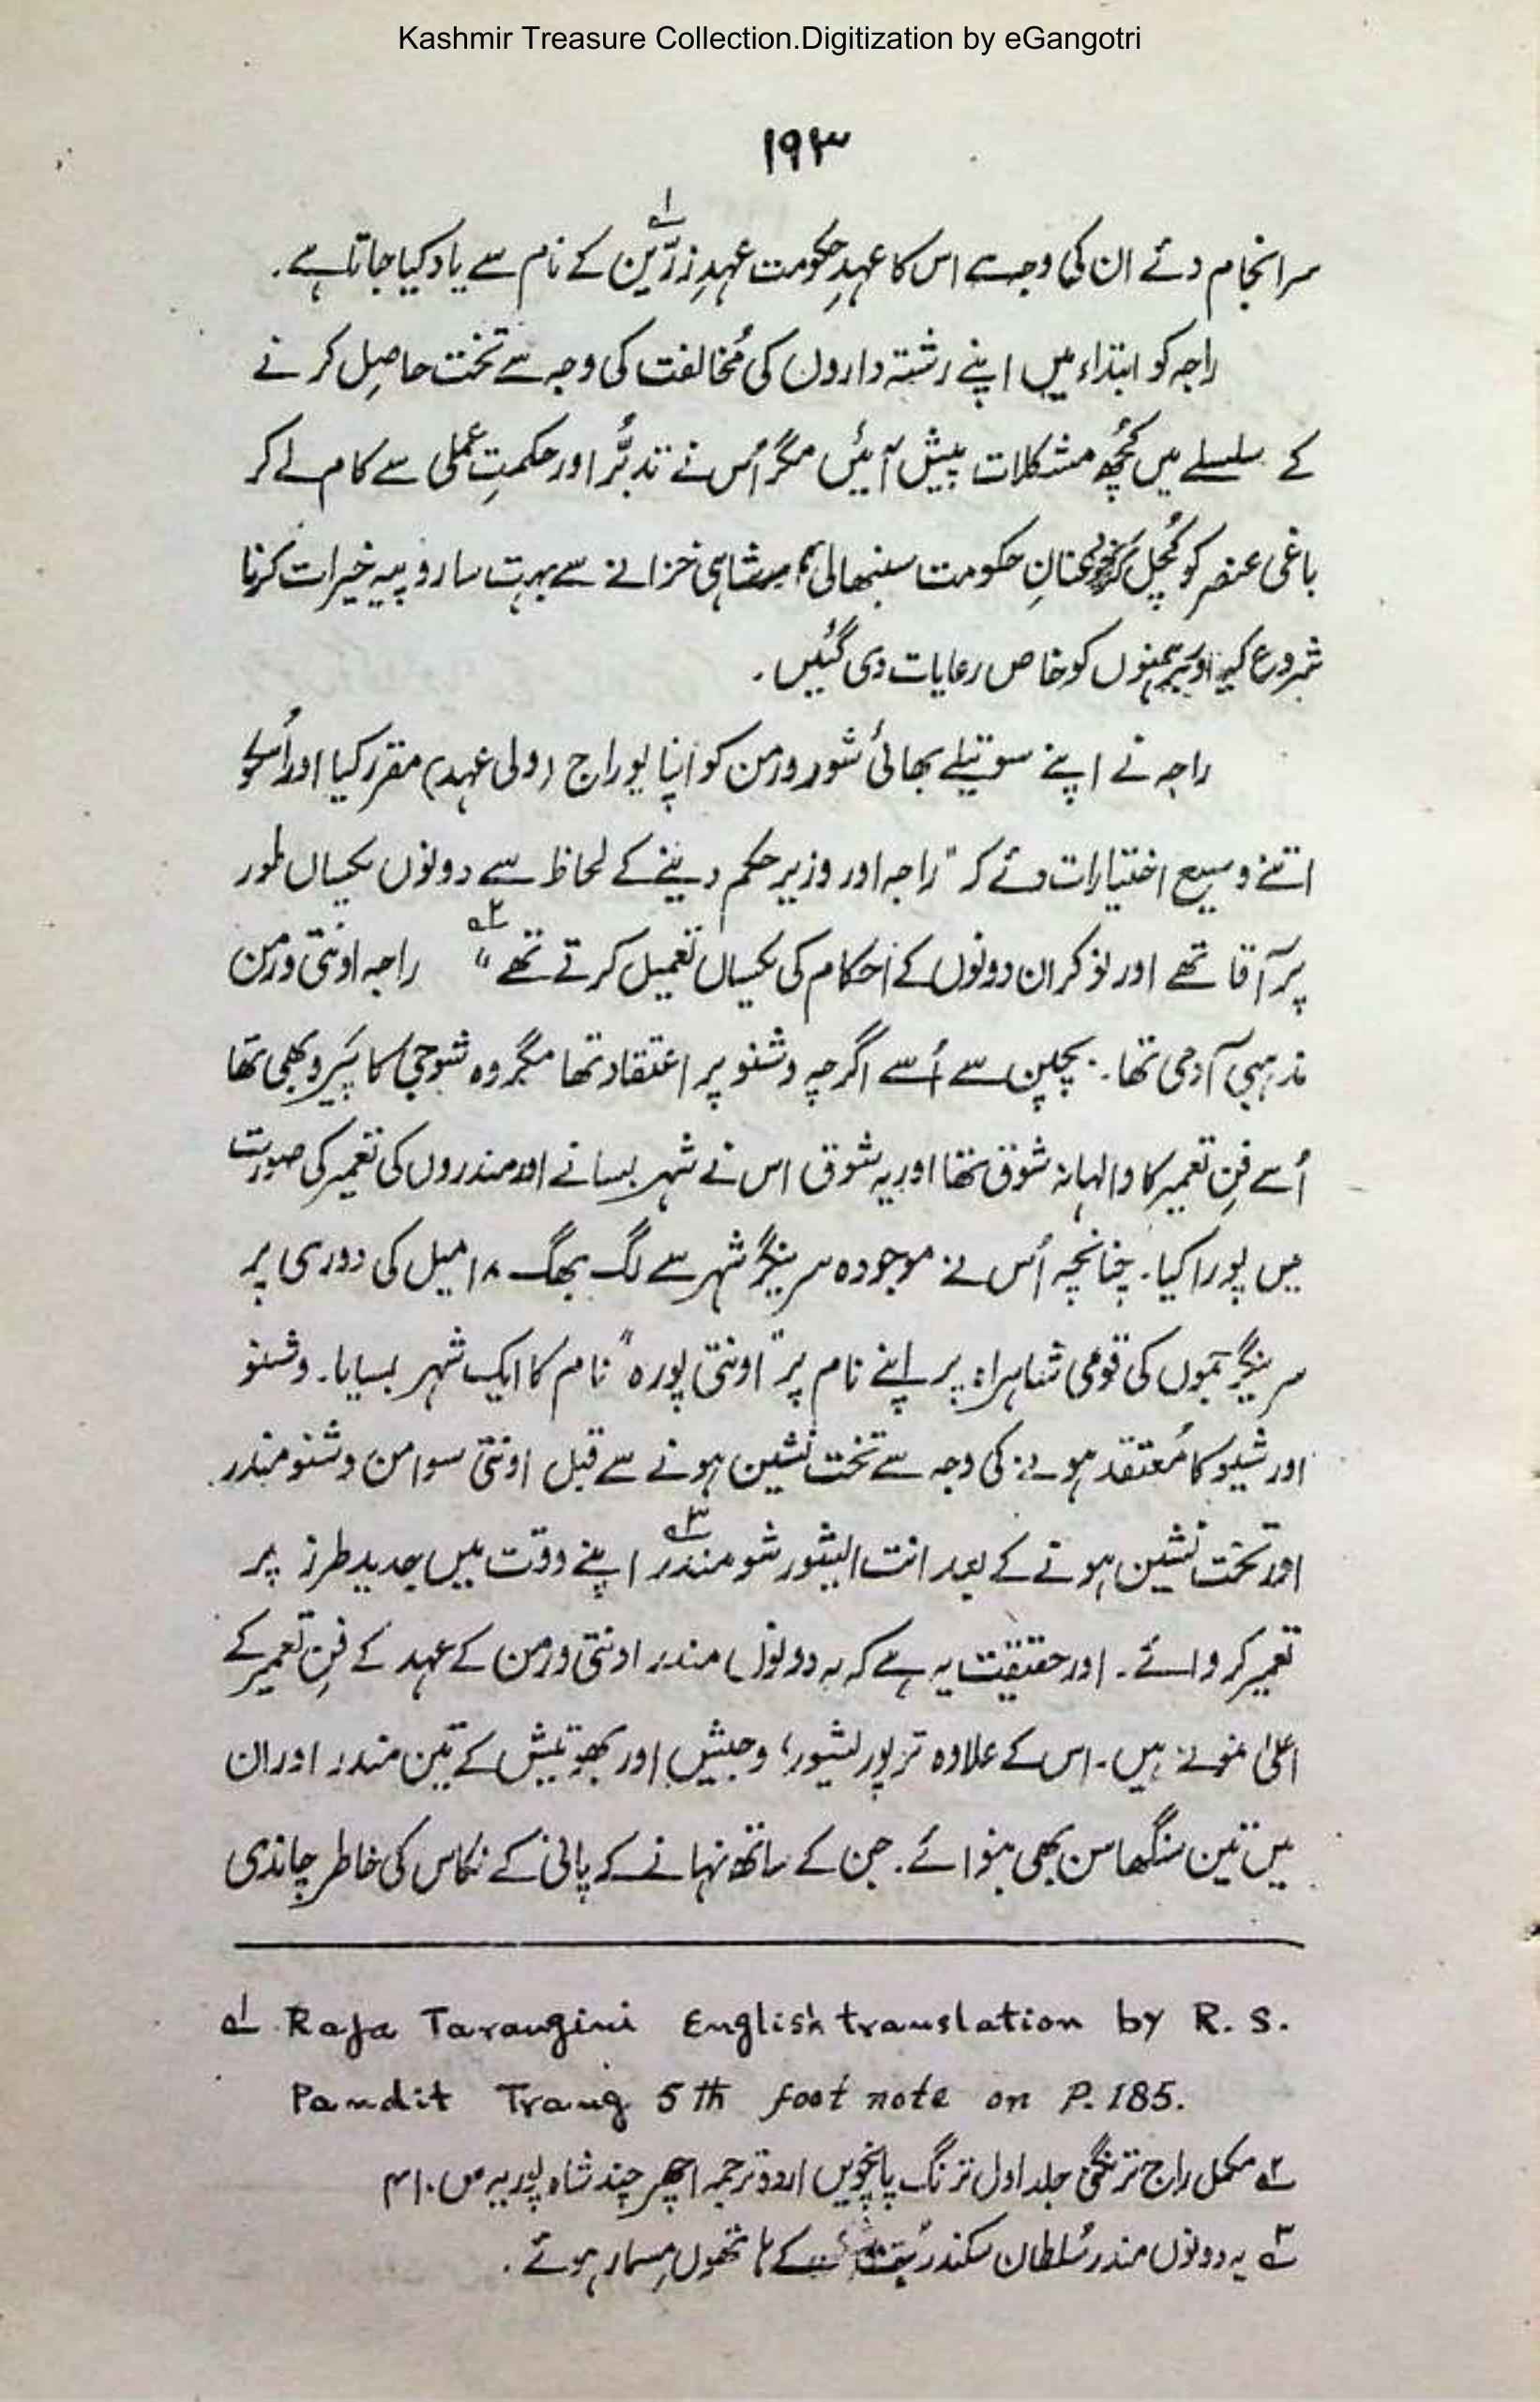 Kashmir Treasure Collection.Digitization by eGangotri
۱۹۳
سرانجام دئے ان کی وجہ سے اس کا عہدِ حکومت عہدِ زرّیں۱؎ کے نام سے یاد کیا جاتا ہے۔
راجہ کو ابتداء میں اپنے رشتہ داروں کی مُخالفت کی وجہ سے تخت حاصِل کرنے
کے سلسلے میں کُچھ مشکلات پیش آئیں مگر اُس نے تدبُّر اور حکمتِ عملی سے کام لے کر
باغی عنصر کو کُچل کر عنانِ حکومت سنبھالی شاہی خزانے سے بہت سا روپیہ خیرات کرنا
شروع کیا اور برہمنوں کو خاص رعایات دی گئیں۔
راجہ نے اپنے سوتیلے بھائی شورورمن کو اپنا یوراج (ولی عہد) مقرر کیا اور اُسکو
اتنے وسیع اختیارات دئے کہ "راجہ اور وزیر حکم دینے کے لحاظ سے دونوں یکساں طور
پر آقا تھے اور نوکر ان دونوں کے احکام کی یکساں تعمیل کرتے تھے"۲؎ راجہ اونتی ورمن
مذہبی آدمی تھا۔ بچپن سے اُسے اگرچہ وشنو پر اعتقاد تھا مگر وہ شوجی کا پَیرو بھی تھا
اُسے فنِ تعمیر کا والہانہ شوق تھا اور یہ شوق اس نے شہر بسانے اور مندروں کی تعمیر کی صورت
میں پورا کیا۔ چنانچہ اُس نے موجودہ سرینگر شہر سے لگ بھگ ۱۸ میل کی دوری پر
سرینگر جموں کی قومی شاہراہ پر اپنے نام پر "اونتی پورہ" نام کا ایک شہر بسایا۔ وشنو
اور شیو کا مُعتقد ہونے کی وجہ سے تخت نشین ہونے سے قبل اونتی سوامن وشنو مندر
اور تخت نشین ہونے کے بعد انت ایشور شو مندر۳؎ اپنے وقت میں جدید طرز پر
تعمیر کروائے۔ اور حقیقت یہ ہے کہ یہ دونوں مندر اونتی ورمن کے عہد کے فنِ تعمیر کے
اعلیٰ نمونے ہیں۔ اس کے علاوہ ترپوریشور، وجیش اور بھوتیش کے تین مندر اور ان
میں تین سنگھاسن بھی بنوائے۔ جن کے ساتھ نہانے کے پانی کے نکاس کی خاطر چاندی
۱؎ Raja Tarangini English translation by R. S.
Pandit Trang 5th foot note on P. 185.
۲؎ مکمل راج ترنگنی جلد اول ترنگ پانچویں اردو ترجمہ اچھر چند شاہ پوریہ ص ۴۱۰
۳؎ یہ دونوں مندر سُلطان سکندر کے ہاتھوں مسمار ہوئے۔